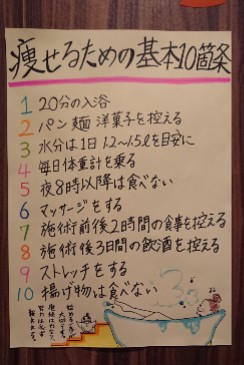 痩せるための基本10箇条
1 20分の入浴
2 パン 麺 洋菓子を控える
3 水分は1日1.2〜1.5ℓを目安に
4 毎日体重計を乗る
5 夜8時以降は食べない
6 マッサージをする
7 施術前後2時間の食事を控える
8 施術後3日間の飲酒を控える
9 ストレッチをする
10 揚げ物は食べない